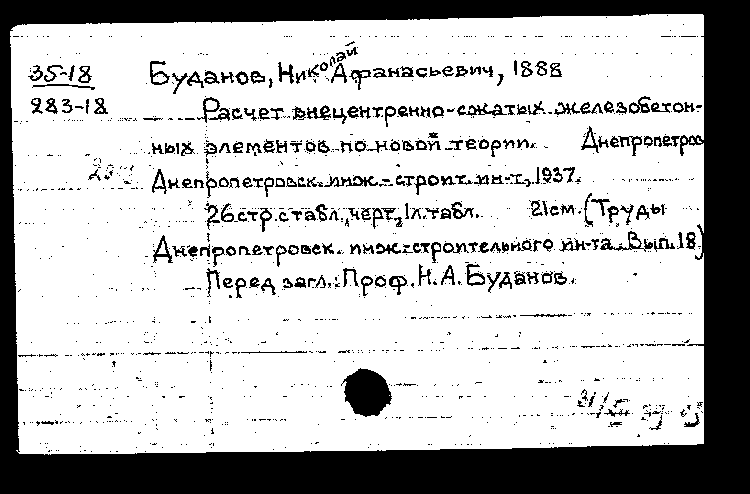 35-18
283-18
Буданов, Николай Афанасьевич, 1888
Расчет внецентренно-сжатых железобетон-
ных элементов по новой теории. Днепропетров
Днепропетровск. инж.-строит. ин-т, 1937.
26 стр. с табл., черт., 1 л. табл. 21 см. (Труды
Днепропетровск. инж.-строительного ин-та. Вып. 18)
Перед загл.: Проф. Н. А. Буданов.